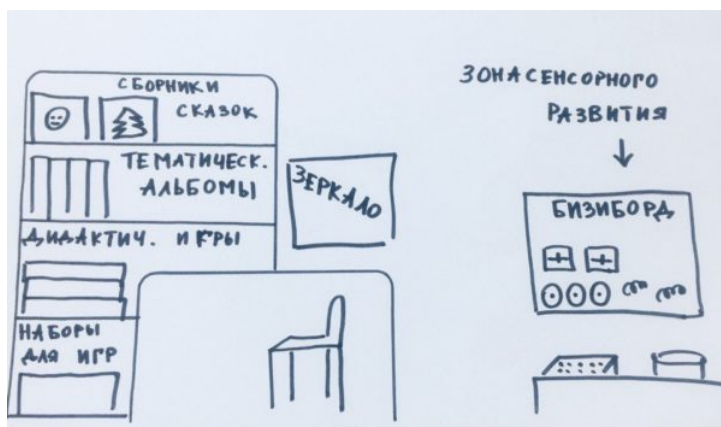 СБОРНИКИ
СКАЗОК
ТЕМАТИЧЕСК.
АЛЬБОМЫ
ДИДАКТИЧ. ИГРЫ
НАБОРЫ
ДЛЯ ИГР
ЗЕРКАЛО
ЗОНА СЕНСОРНОГО
РАЗВИТИЯ
БИЗИБОРД